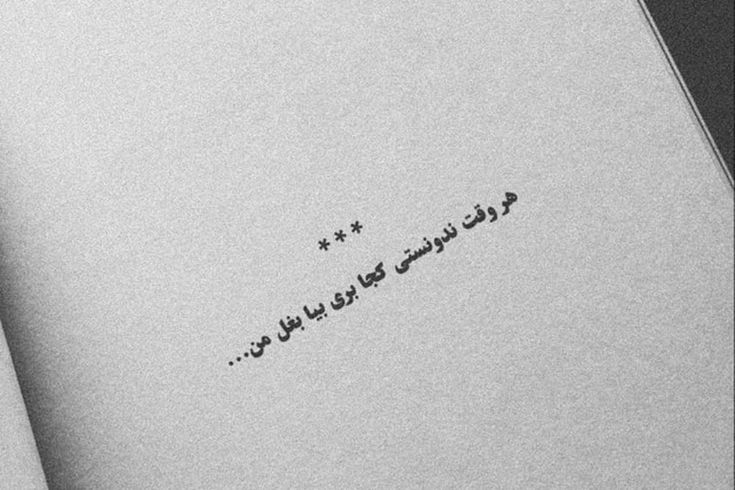 ***
هر وقت ندونستی کجا بری بیا بغل من...